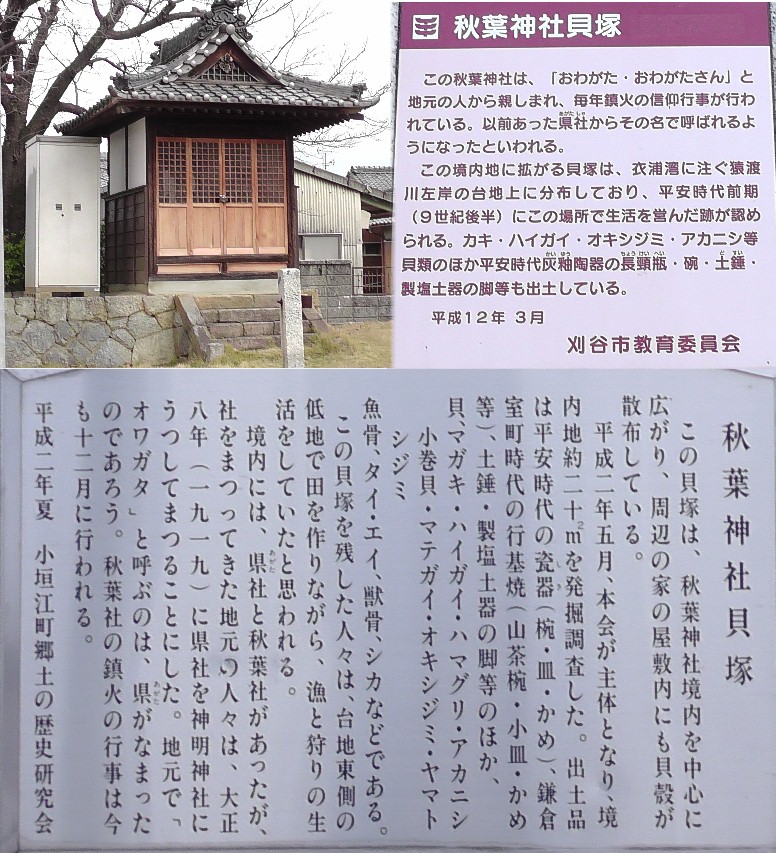 秋葉神社貝塚
この秋葉神社は、「おわがた・おわがたさん」と
地元の人から親しまれ、毎年鎮火の信仰行事が行わ
れている。以前あった県社からその名で呼ばれるよ
うになったといわれる。
この境内地に拡がる貝塚は、衣浦湾に注ぐ猿渡
川左岸の台地上に分布しており、平安時代前期
(9世紀後半)にこの場所で生活を営んだ跡が認め
られる。カキ・ハイガイ・オキシジミ・アカニシ等
貝類のほか平安時代灰釉陶器の長頸瓶・碗・土錘・
製塩土器の脚等も出土している。
平成12年 3月
刈谷市教育委員会
秋葉神社貝塚
この貝塚は、秋葉神社境内を中心に
広がり、周辺の家の屋敷内にも貝殻が
散布している。
平成二年五月、本会が主体となり、境
内地約二十㎡を発掘調査した。出土品
は平安時代の瓷器(椀・皿・かめ)、鎌倉
室町時代の行基焼(山茶椀・小皿・かめ
等)、土錘・製塩土器の脚等のほか、
貝、マガキ・ハイガイ・ハマグリ・アカニシ
小巻貝・マテガイ・オキシジミ・ヤマト
シジミ
魚骨、タイ・エイ、獣骨、シカなどである。
この貝塚を残した人々は、台地東側の
低地で田を作りながら、漁と狩りの生
活をしていたと思われる。
境内には、県社と秋葉社があったが、
社をまつってきた地元の人々は、大正
八年(一九一九)に県社を神明神社に
うつしてまつることにした。地元で「
オワガタ」と呼ぶのは、県がなまった
のであろう。秋葉社の鎮火の行事は今
も十二月に行われる。
平成二年夏 小垣江町郷土の歴史研究会